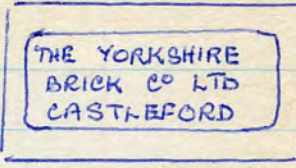 THE YORKSHIRE
BRICK Cº LTD
CASTLEFORD